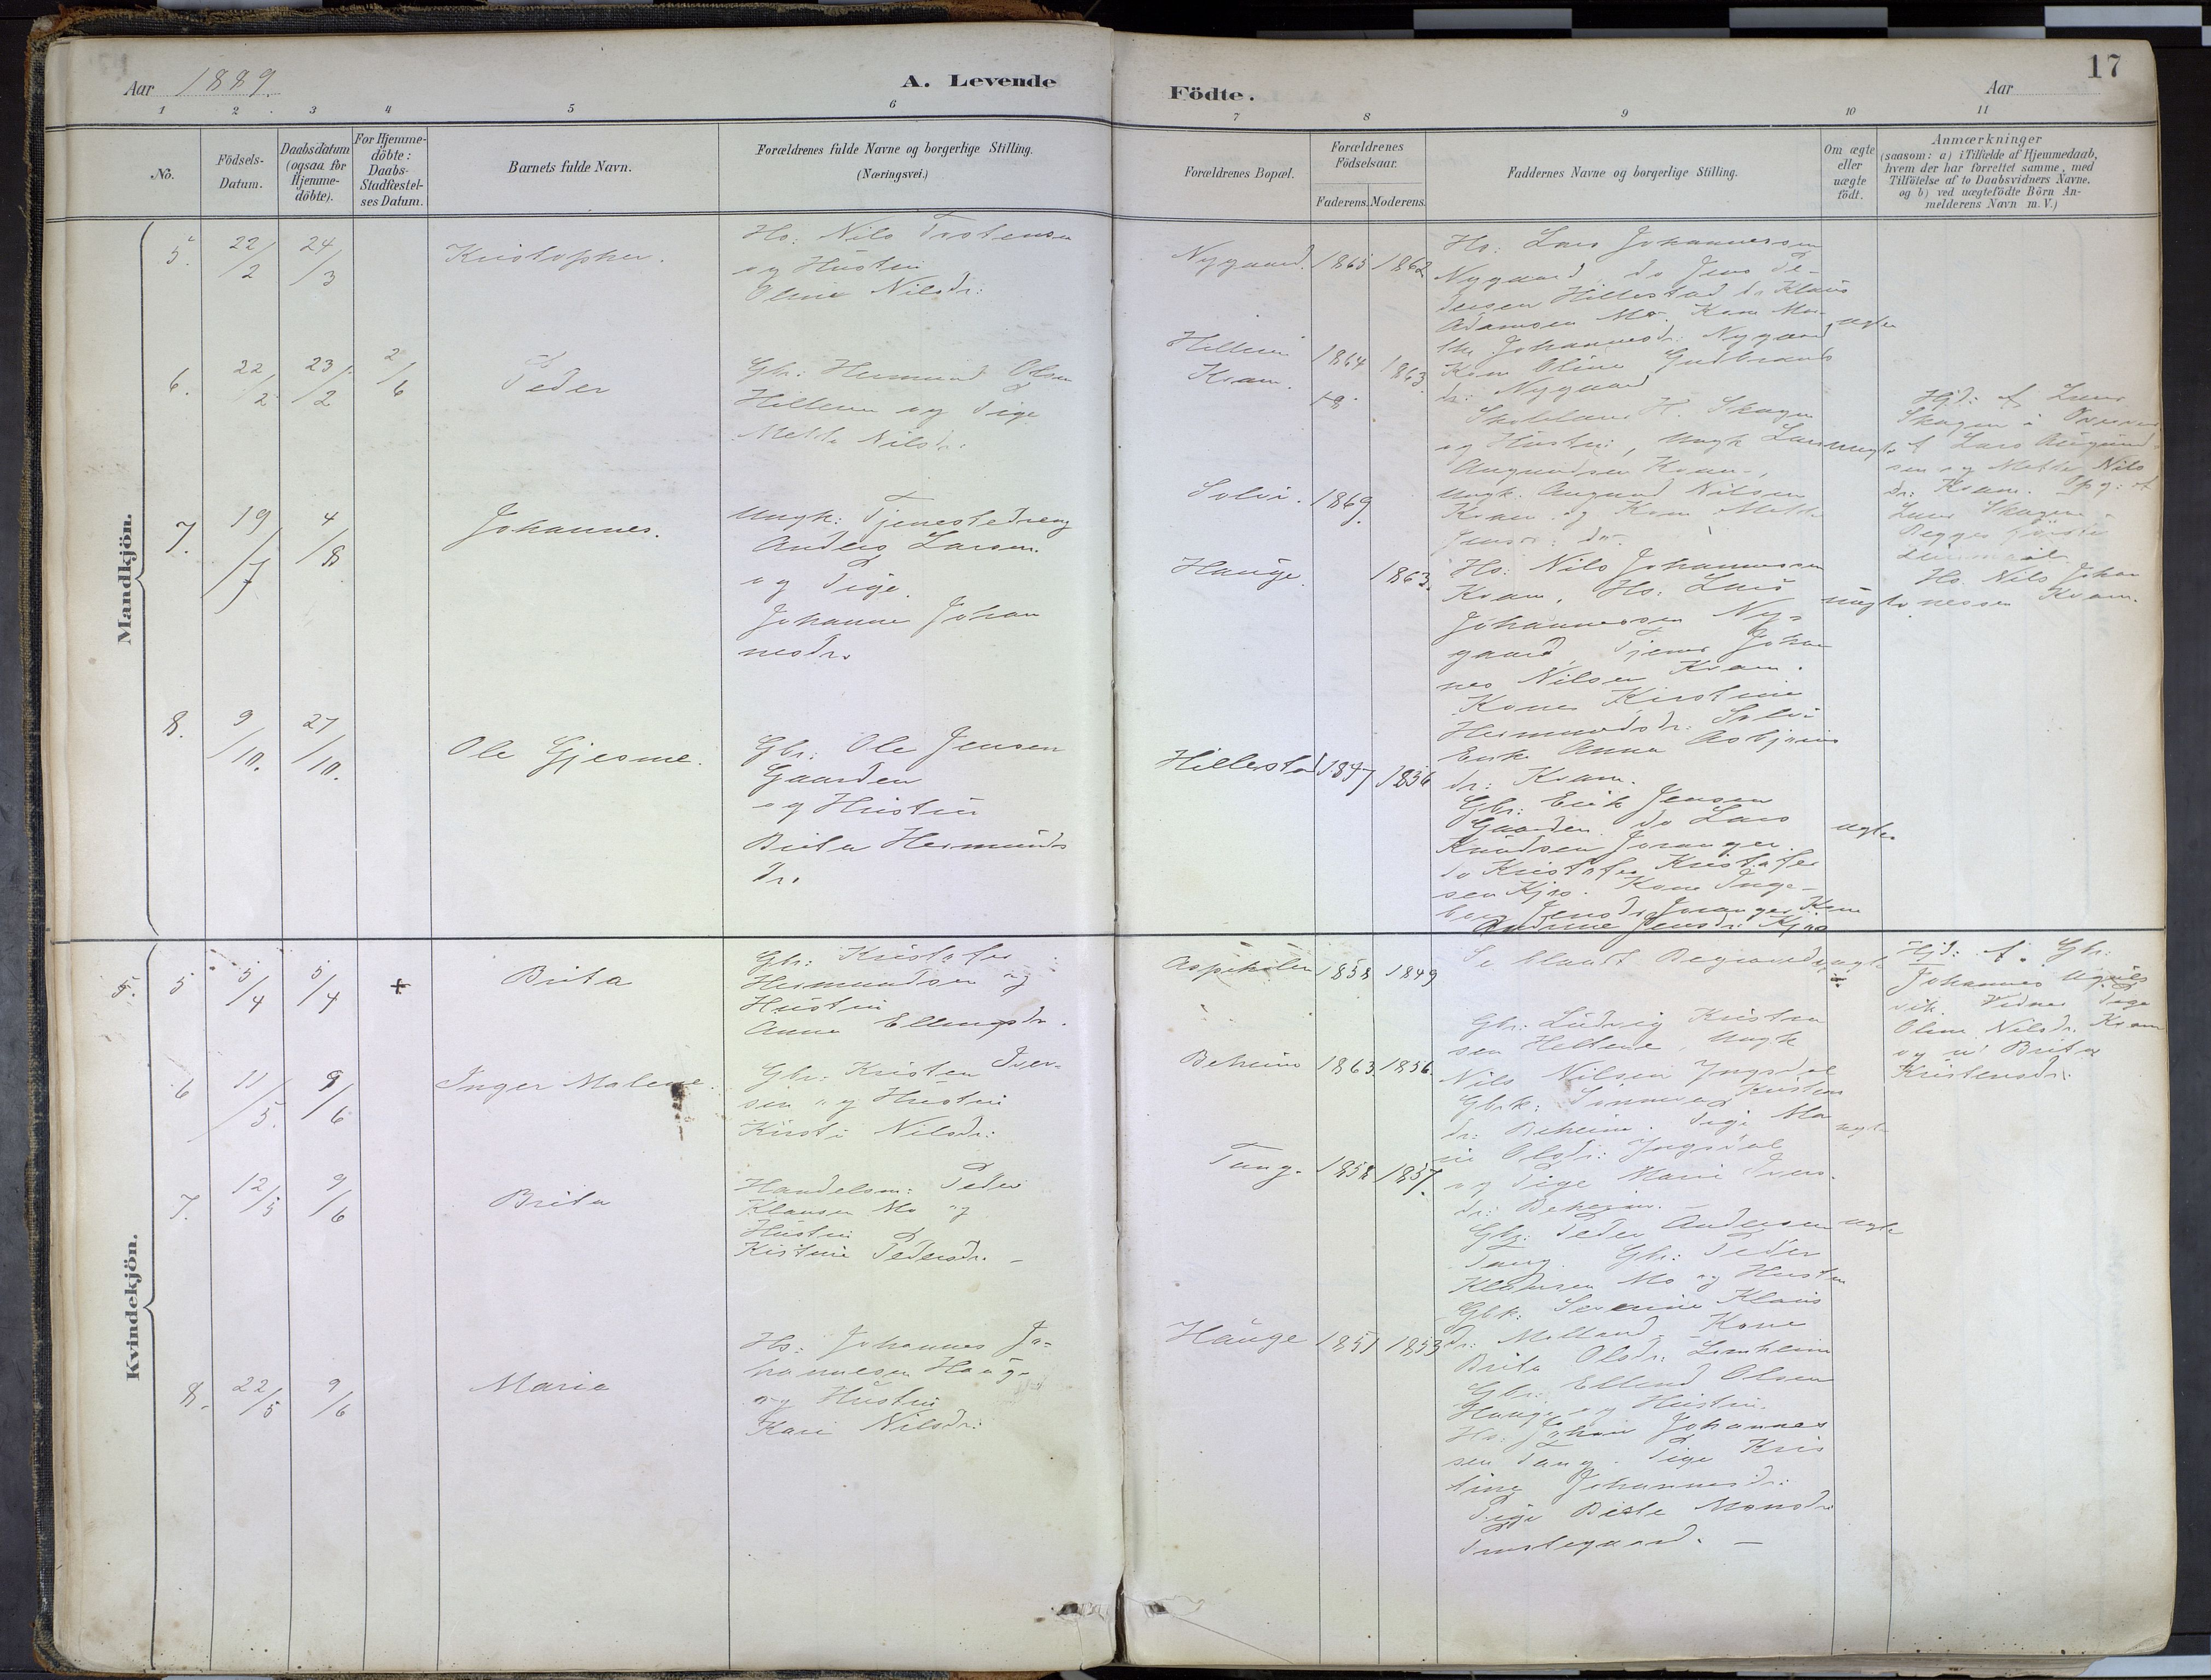 Aar 1889.
A. Levende
Födte.
Aar
17
1
2
3
4
5
6
7
8
9
10
11
No.
Födsels-
Datum.
Daabsdatum
(ogsaa for
Hjemme-
döbte).
For Hjemme-
döbte:
Daabs-
Stadfæstel-
ses Datum.
Barnets fulde Navn.
Forældrenes fulde Navne og borgerlige Stilling.
(Næringsvei.)
Forældrenes Bopæl.
Forældrenes
Födselsaar.
Faderens. Moderens.
Faddernes Navne og borgerlige Stilling.
Om ægte
eller
uægte
födt.
Anmærkninger
(saasom: a) i Tilfælde af Hjemmedaab,
hvem der har forrettet samme, med
Tilföielse af to Daabsvidners Navne.
og b) ved uægtefödte Börn An-
melderens Navn m. V.)
Mandkjön.
5. 22/2 24/3
Kristopher.
Hs: Nils
og Hustru
Oline Nilsdr:
Nygaard. 1865 1862
Hs: Lars Johannessen
Nygaard, do Jens Pe-
dersen Hillestad do Klaus
Adamsen Mo. Kone Mar-
the Johannesdr: Nygaard
Kone Oline Gudbrands
dr: Nygaard
ægte
6. 22/2 23/2 2/6
Peder
Gbr: Hermund Olsen
Hilleren og Pige
Mette Nilsdr:
Kvam. 1864 1863.
Skolelærer K. Skagen
og Hustru, Ungk Lars
Augundsen Kvam,
Ungk. Augund Nilsen
Kvam og Kone Mette
uægte
Hjd: af Lærer
Skagen i
af Lars Augund-
sen og Mette Nils
dr: Kvam.
Lærer Skagen
7. 19/7 4/8
Johannes.
Ungk: Tjenestedreng
Anders Larsen
og Pige
Johanne Johan
nesdr.
Solvi. 1869.
Hauge. 1863.
Hs: Nils Johannessen
Kvam, Hs: Lars
Johannessen Ny-
gaard, Tjener Johan
nes Nilsen Kvam.
Kone Kirstine
Hermundsdr: Solvi
Enke Anna Asbjørns
dr: Kvam.
uægte
Hs. Nils Johan
nessen Kvam.
8. 9/10. 27/10.
Ole Gjesme.
Gbr: Ole Jensen
Gaarden
og Hustru
Brita Hermunds
dr.
Hillestad 1847 1856
Gbr: Erik Jensen
Gaarden. do Lars
Knudsen Joranger.
do Kristofer Kristofer
sen Kjos. Kone Inge-
borg Jensdr Joranger Kone
Andrine Jensdr: Kjos
ægte
Kvindekjön.
5. 5 5/4 5/4 +
Brita
Gbr: Kristofer
Hermundsen og
Hustru
Anna Ellingsdr.
Aspeholen 1858 1849
Se blandt Begravede
ægte
Hjd: af Gbr:
Johannes
vik. Vidner Pige
Oline Nilsdr. Kvam
og Brita
Kristensdr:
6 11/5. 9/6
Inger Malene.
Gbr: Kristen Iver-
sen og Hustru
Kirsti Nilsdr:
Beheim 1863. 1856.
Gbr: Ludvig Kristen
sen Heltene, Ungk
Nils Nilsen Yngsdal
Gbrk: Sønneva Kristens
dr: Beheim. Pige Ma
rie Olsdr: Yngsdal
og Pige Marie Ivers-
dr: Beheim.
ægte
7. 12/5 9/6
Brita
Handelsm: Peder
Klausen Mo og
Hustru
Kistine Pedersdr. -
Tang. 1858 1857.
Gbr: Peder Andersen
Tang. Gbr: Peder
Klausen Mo og Hustru
Gbk: Severine Klaus
dr: Molland. Kone
Brita Olsdr: Lomheim
ægte
8. 22/5 9/6
Marie
Hs: Johannes Jo-
hannesen Haug-
og Hustru
Kari Nilsdr:
Hauge 1851 1853
Gbr: Ellend Olsen
Hauge og Hustru.
Hs: Johan Johannes
sen Tang. Pige Kris
tine Johannesdr:
Pige Brita Monsdr:
Prestegaard. -